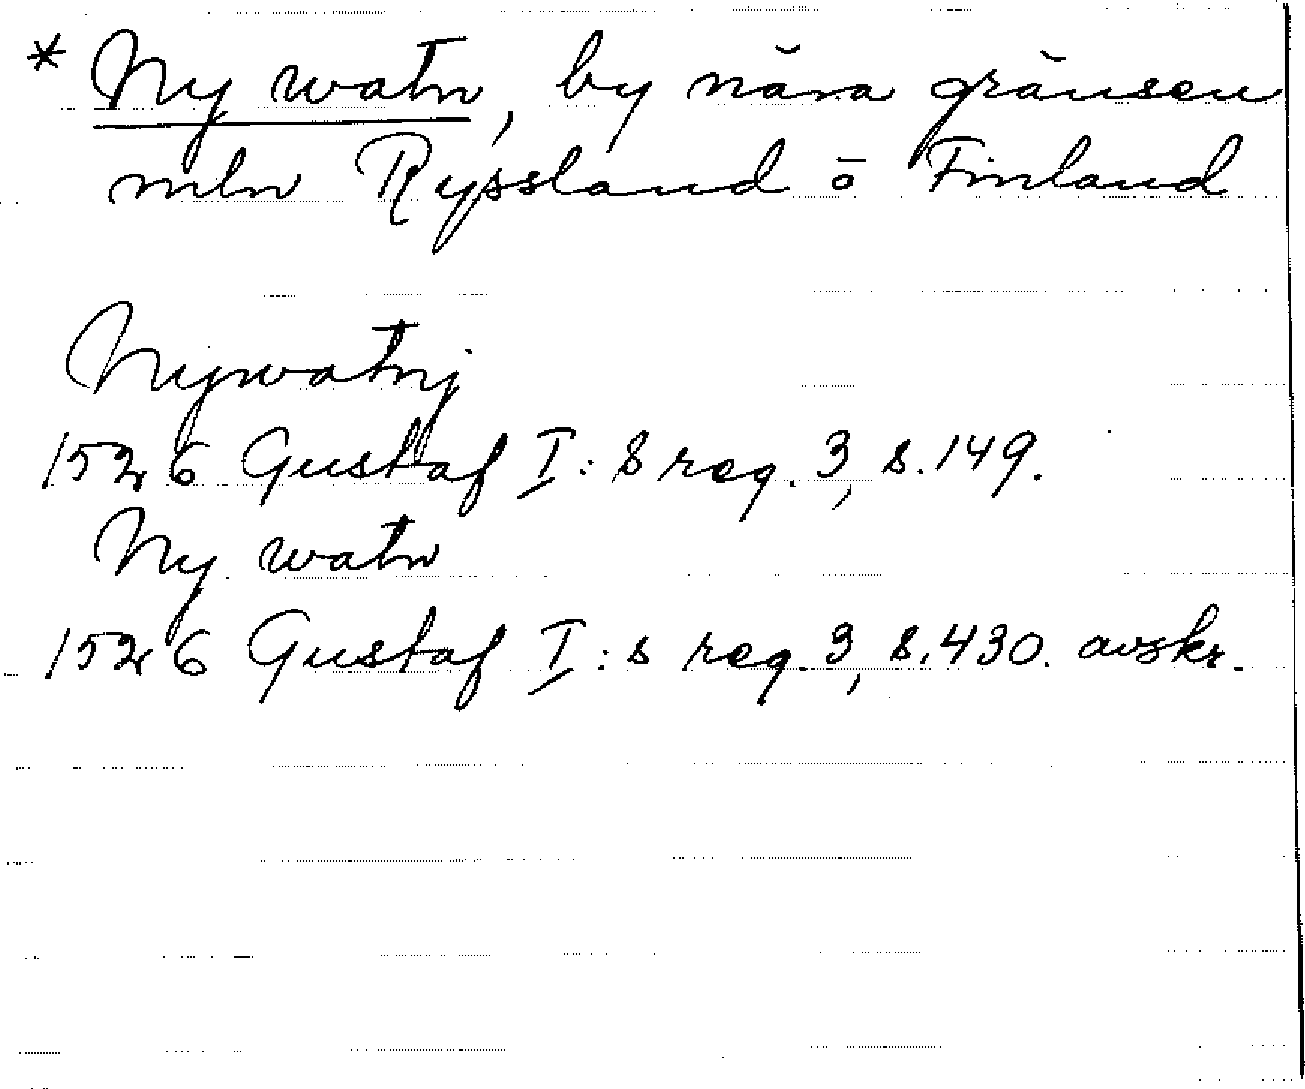 * Ny watn, by nära gränsen
mln Ryssland o Finland
Nywatnj
1526 Gustaf I:s reg. 3, s. 149.
Ny watn
1526 Gustaf I:s reg. 3, s. 430. avskr.